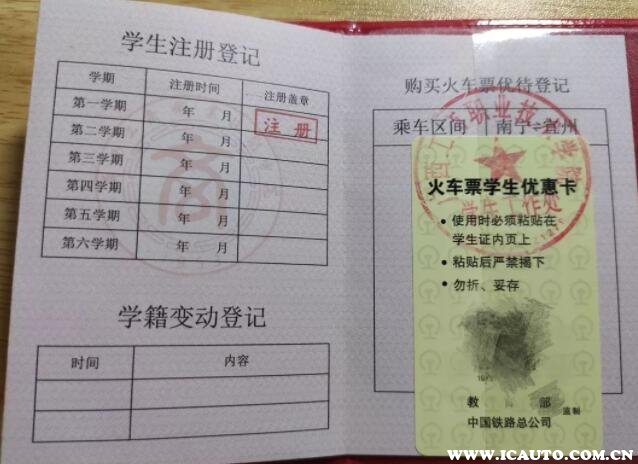 学生注册登记
学期 注册时间 注册盖章
第一学期 年 月
注册
第二学期 年 月
第三学期 年 月
第四学期 年 月
第五学期 年 月
第六学期 年 月
商
学籍变动登记
时间 内容
购买火车票优待登记
乘车区间 南宁
州
职业技
学院
学生工作处
火车票学生优惠卡
• 使用时必须粘贴在
学生证内页上
• 粘贴后严禁揭下
• 勿折、妥存
教 部
监制
中国铁路总公司
www.ICAUTO.COM.CN